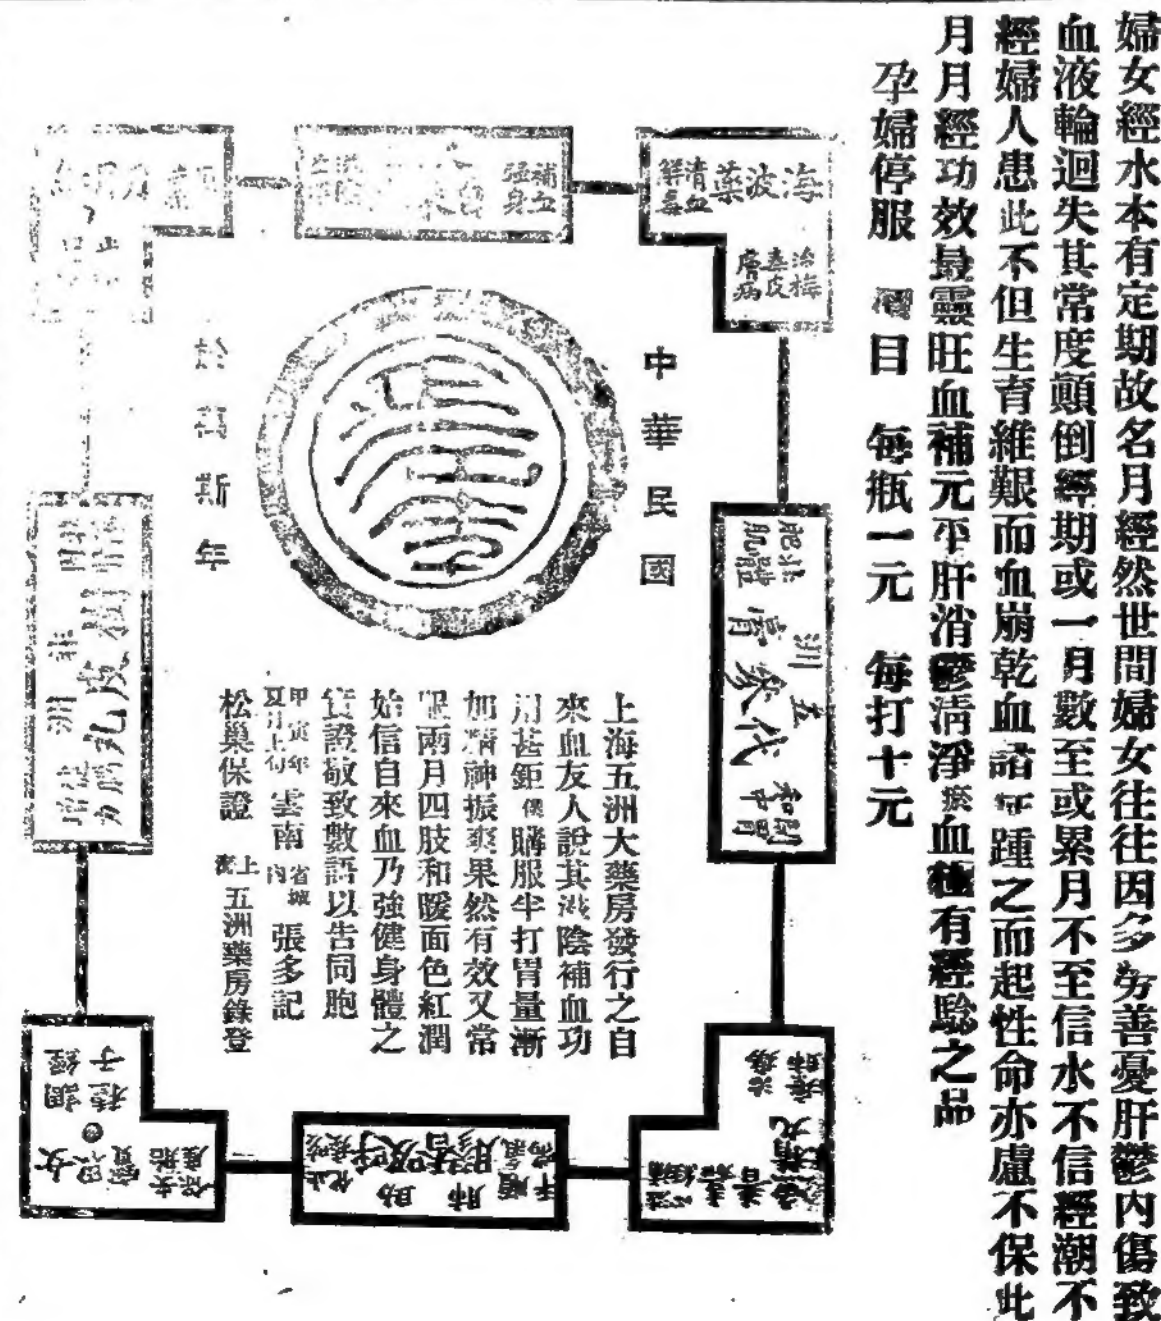 婦女經水本有定期故名月經然世間婦女往往因多勞善憂肝鬱內傷致
血液輪迴失其常度顛倒經期或一月數至或累月不至信水不信經潮不
經婦人患此不但生育維艱而血崩乾血諸症踵之而起性命亦慮不保此
月月經功效最靈旺血補元平肝消鬱清淨瘀血極有經驗之品
孕婦停服 價目 每瓶一元 每打十元
海波藥
清血解毒
治梅毒皮膚病
補血強身
中華民國
於萬斯年
五洲
代參膏
壯體肥肌
和中開胃
樹皮丸
上海五洲大藥房發行之自
來血友人說其滋陰補血功
用甚鉅僕購服半打胃量漸
加精神振爽果然有效又常
服兩月四肢和暖面色紅潤
始信自來血乃強健身體之
實證敬致數語以告同胞
甲寅年夏月上旬 雲南省城內 張多記
松巢保證 上海五洲藥房錄登
女界寶
調經種子
安胎保產
助肺呼吸香膠
止咳化痰
順氣平喘